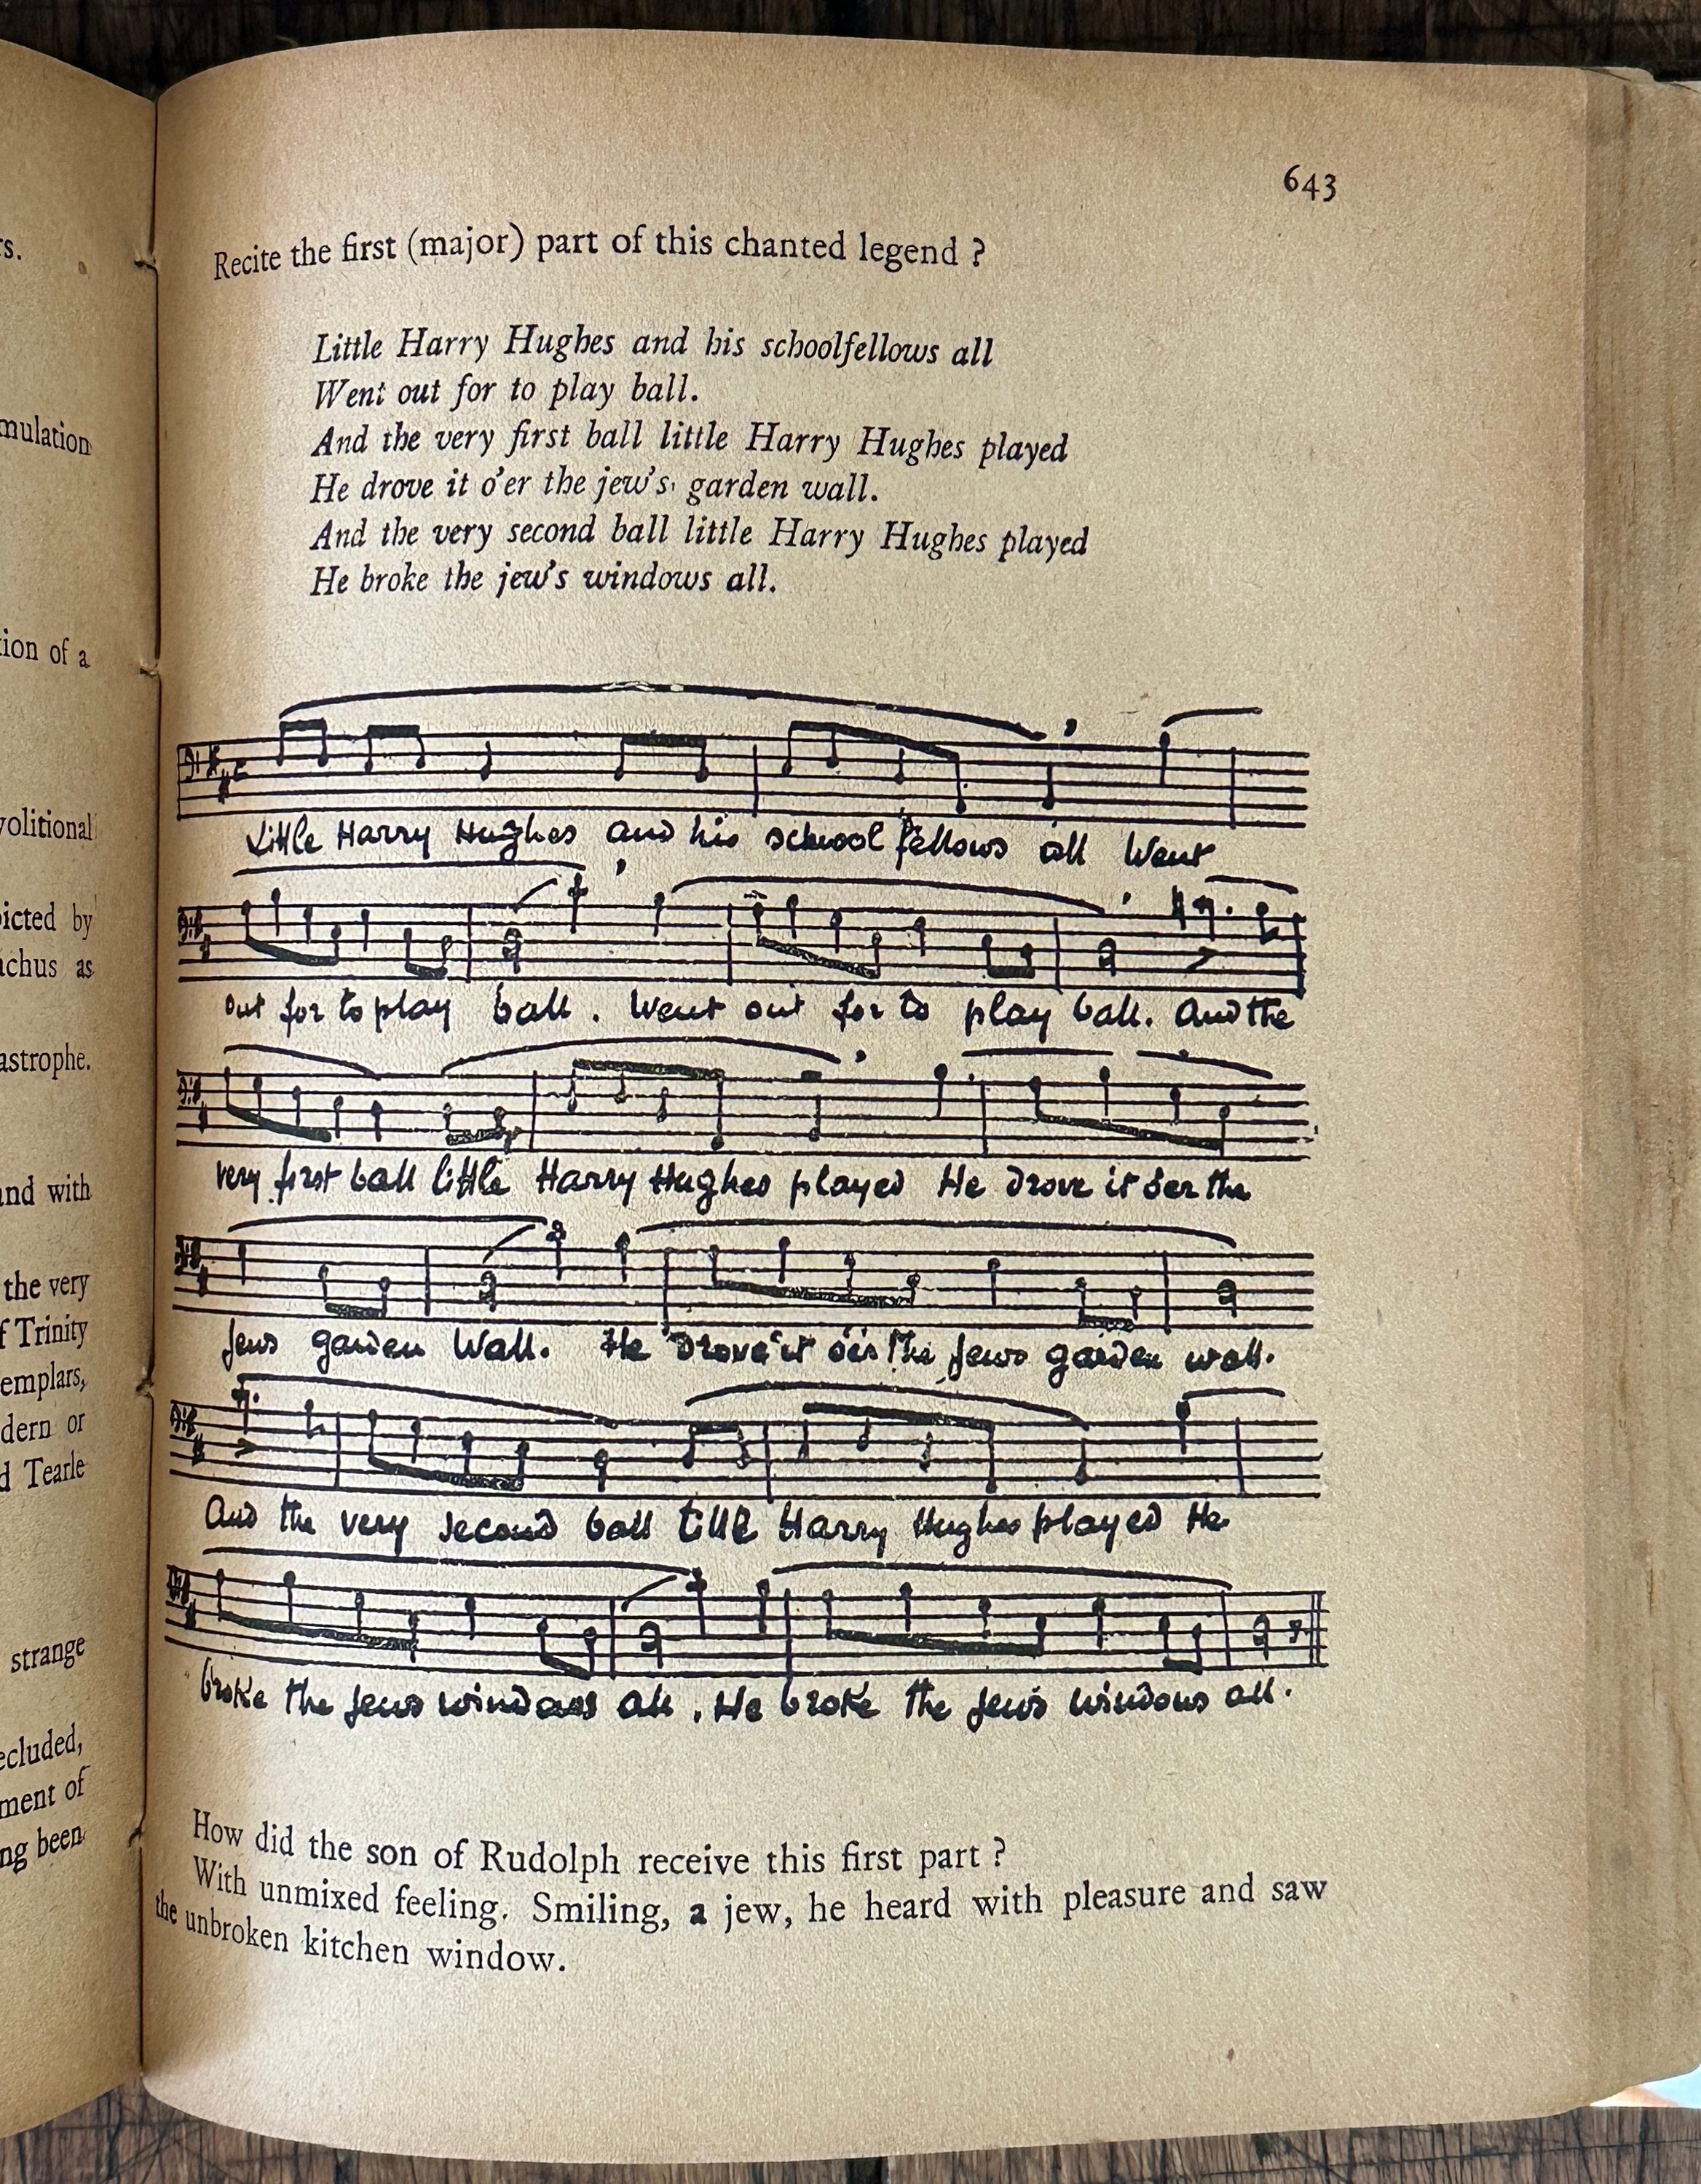 rs.
mulation
tion of a
volitional
picted by
achus as
astrophe.
and with
the very
f Trinity
emplars,
dern or
d Tearle
strange
ecluded,
ment of
ng been
643
Recite the first (major) part of this chanted legend ?
Little Harry Hughes and his schoolfellows all
Went out for to play ball.
And the very first ball little Harry Hughes played
He drove it o'er the jew's garden wall.
And the very second ball little Harry Hughes played
He broke the jew's windows all.
Little Harry Hughes and his school fellows all Went
out for to play ball. Went out for to play ball. And the
very first ball little Harry Hughes played He drove it o'er the
jews garden wall. He drove it o'er the jews garden wall.
And the very second ball little Harry Hughes played He
broke the jews windows all. He broke the jew's windows all.
How did the son of Rudolph receive this first part ?
With unmixed feeling. Smiling, a jew, he heard with pleasure and saw
the unbroken kitchen window.